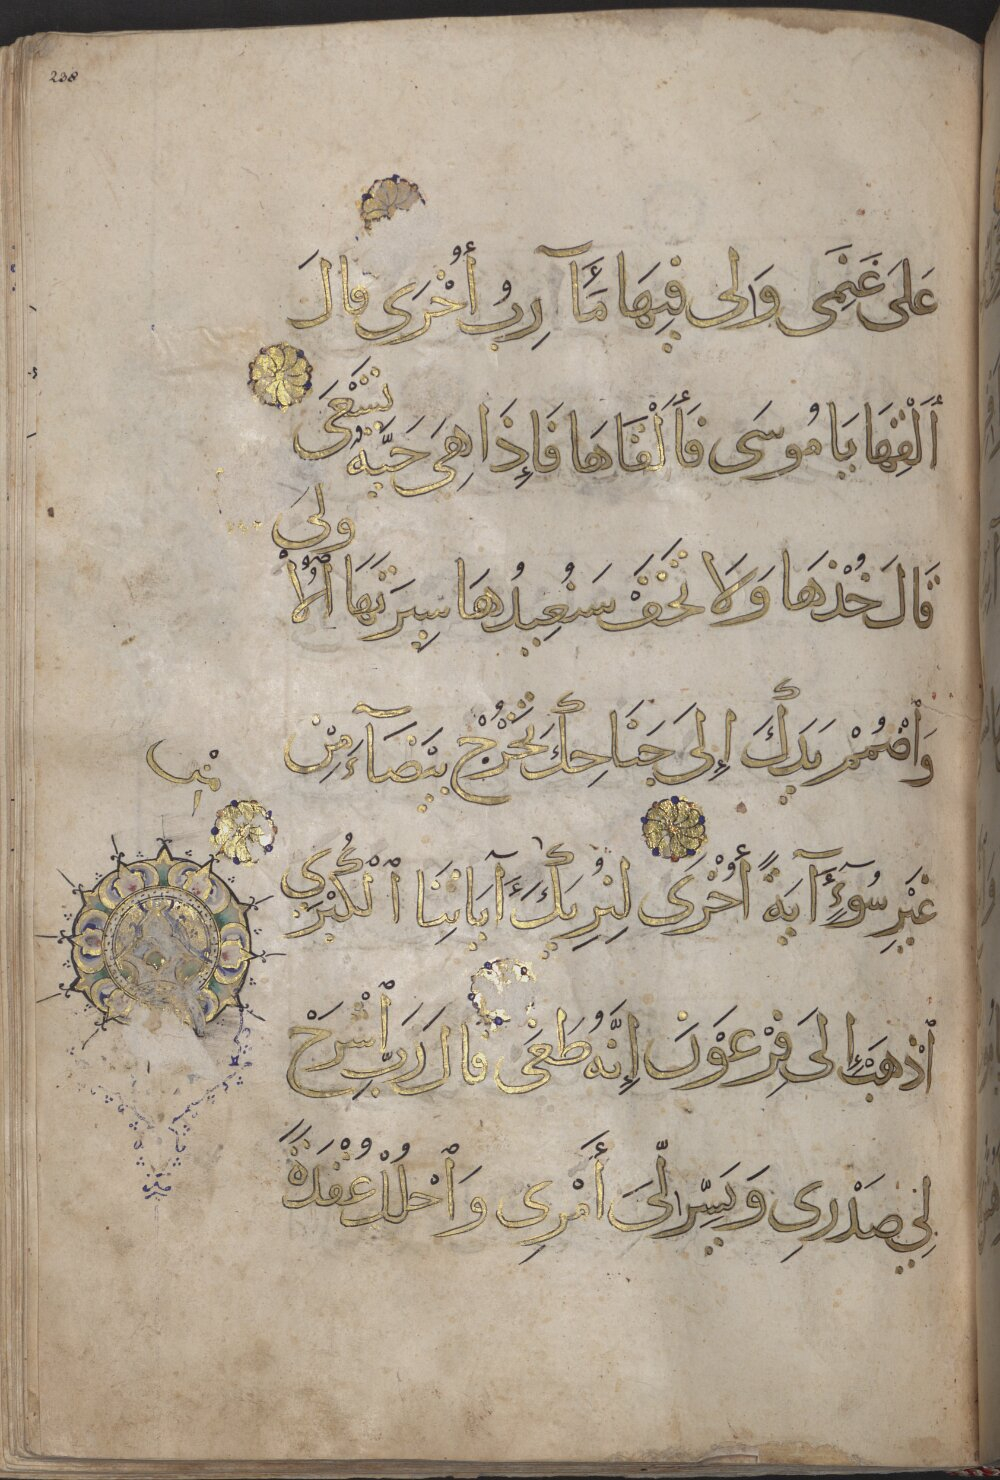 238
عَلَى غَنَمِى وَلِى فِيهَا مَـَٔآرِبُ أُخْرَى قَالَ
أَلْقِهَا يَا مُوسَى فَأَلْقَاهَا فَإِذَا هِىَ حَيَّةٌ تَسْعَى
قَالَ خُذْهَا وَلَا تَخَفْ سَنُعِيدُهَا سِيرَتَهَا ٱلْأُولَى
وَٱضْمُمْ يَدَكَ إِلَى جَنَاحِكَ تَخْرُجْ بَيْضَآءَ مِنْ
غَيْرِ سُوٓءٍ آيَةً أُخْرَى لِنُرِيَكَ مِنْ آيَاتِنَا ٱلْكُبْرَى
ٱذْهَبْ إِلَى فِرْعَوْنَ إِنَّهُ طَغَى قَالَ رَبِّ ٱشْرَحْ
لِي صَدْرِى وَيَسِّرْ لِىٓ أَمْرِى وَٱحْلُلْ عُقْدَةً